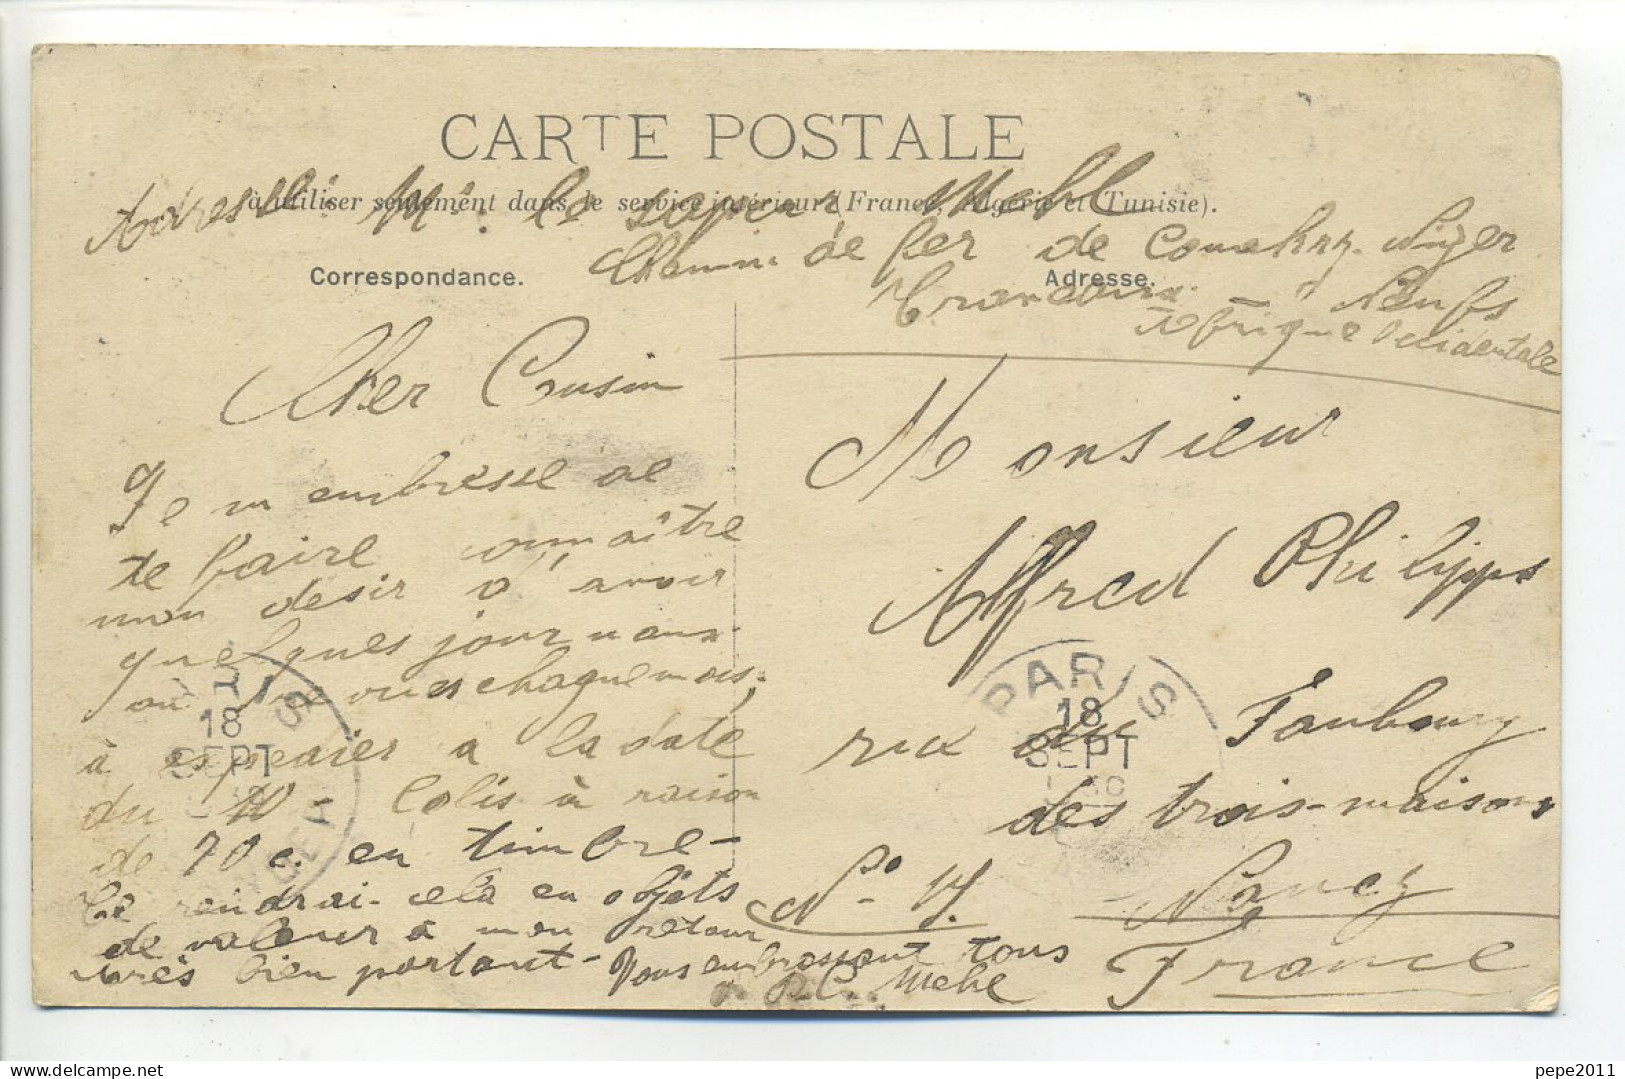 CARTE POSTALE
à utiliser seulement dans le service intérieur (France, Algérie et Tunisie).
Adresse : Mr. le sapeur Mehl
Chemin de fer de Conakry. Niger
Afrique Occidentale
Correspondance.
Adresse.
Cher Cousin
Je m embresse de
te faire connaître
mon désir d'avoir
quelques journaux
ou revues chaque mois,
à espedier a la date
du 10 - Colis à raison
de 70 c. en timbre-
Te rendrai cela en objets
de valeur à mon retour
très bien portant - Vous embrassant tous
Mehl
Monsieur
Alfred Philipps
rue du Faubourg
des trois-maisons
No
Nancy
France
PARIS
18
SEPT
PARIS
18
SEPT
pepe2011